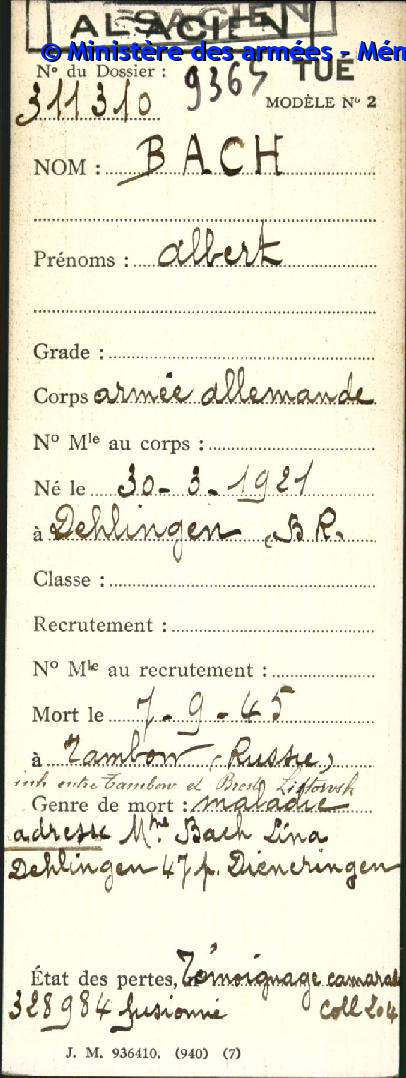 ALSACIEN
© Ministère des armées - Mém
N° du Dossier : 9365 TUÉ
311310 MODÈLE N° 2
NOM : BACH
Prénoms : Albert
Grade :
Corps armée allemande
N° Mle au corps :
Né le 30-3-1921
à Dehlingen (B R.
Classe :
Recrutement :
N° Mle au recrutement :
Mort le 7-9-45
à Tambow (Russie)
inh entre Tambow et Brest Litowsk
Genre de mort : maladie
adresse Mme Bach Lina
Dehlingen 47 p. Diemeringen
État des pertes, Témoignage camarade
328984 fusionné Coll 204
J. M. 936410. (940) (7)